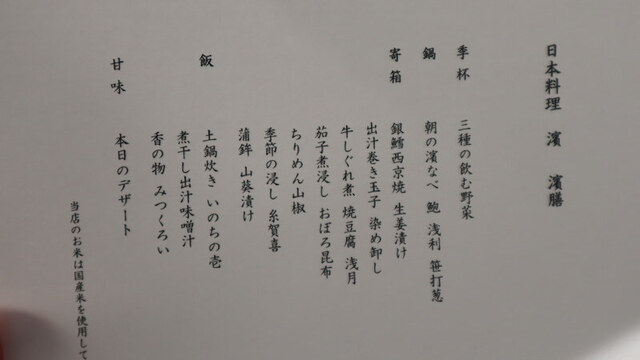 日本料理 濱 濱膳
季杯 三種の飲む野菜
鍋 朝の濱なべ 鮑 浅利 笹打葱
寄箱 銀鱈西京焼 生姜漬け
出汁巻き玉子 染め卸し
牛しぐれ煮 焼豆腐 浅月
茄子煮浸し おぼろ昆布
ちりめん山椒
季節の浸し 糸賀喜
蒲鉾 山葵漬け
飯 土鍋炊き いのちの壱
煮干し出汁味噌汁
香の物 みつくろい
甘味 本日のデザート
当店のお米は国産米を使用して